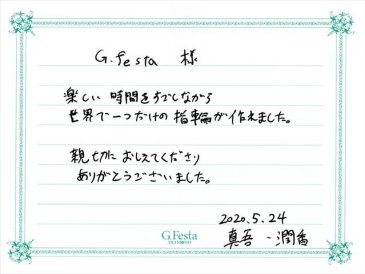 G.festa 様
楽しい 時間をすごしながら
世界で一つだけの 指輪が作れました。
親切に おしえてくださり
ありがとうございました。
2020.5.24
真吾・潤香
G.Festa